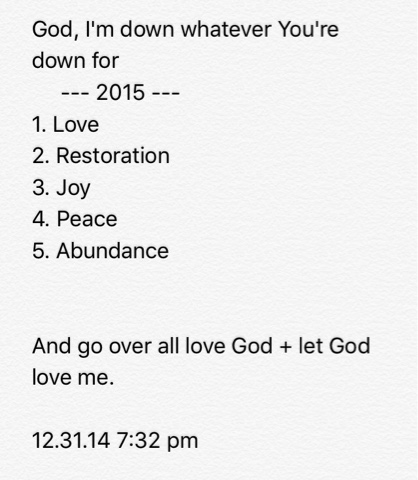 God, I'm down whatever You're
down for
--- 2015 ---
1. Love
2. Restoration
3. Joy
4. Peace
5. Abundance
And go over all love God + let God
love me.
12.31.14 7:32 pm